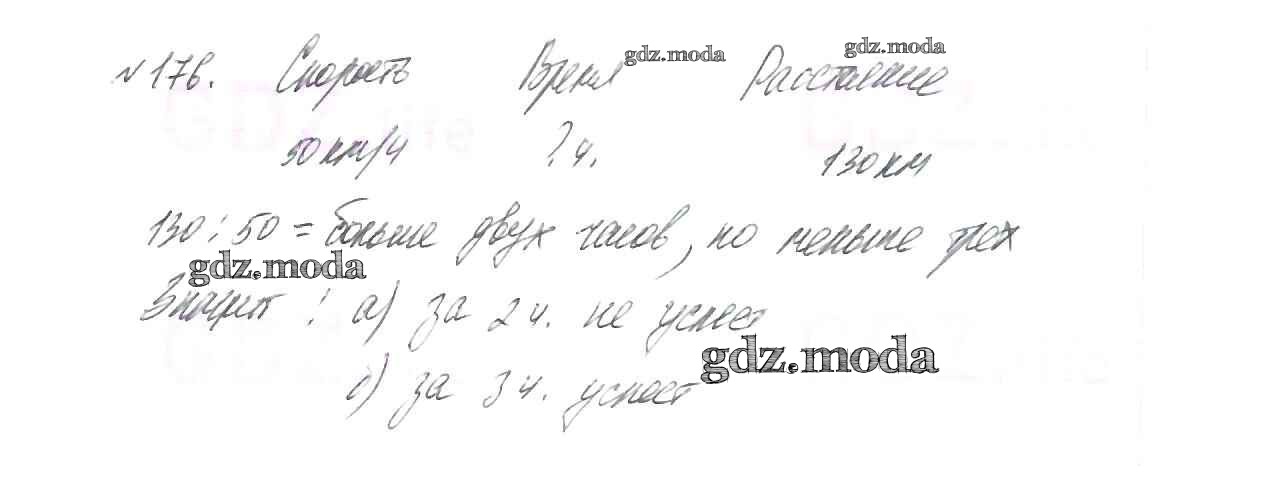 №176. Скорость Время Расстояние
gdz.moda gdz.moda
50 км/ч ? ч. 130 км
130 : 50 = больше двух часов, но меньше трех
gdz.moda
Значит : а) за 2 ч. не успеет
gdz.moda
б) за 3 ч. успеет